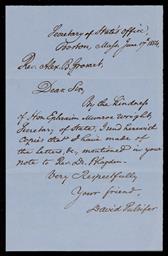 Secretary of State's Office,
Boston, Mass. June 17, 1854.
Rev. Alex. B. Grosart,
Dear Sir,
By the kindness
of Hon. Ephraim Monroe Wright,
Secretary of State, I send herewith
copies that I have made of
the letters, &c., mentioned in your
note to Rev. Dr. Blagden.
Very Respectfully
Your friend,
David Pulsifer